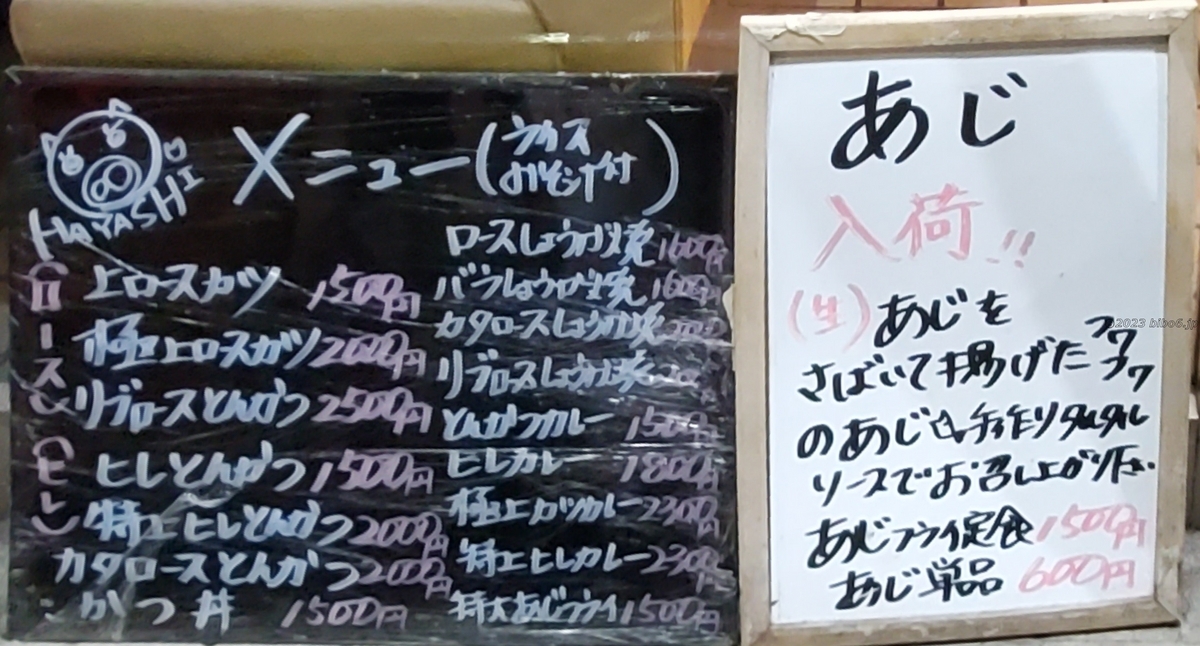 HAYASHI
メニュー(ライス
おみそ汁付)
ロース
上ロースカツ 1500円
極上ロスカツ 2000円
リブロースとんかつ 2500円
ヒレ
ヒレとんかつ 1500円
特上ヒレとんかつ 2000円
カタロースとんかつ 2000円
かつ丼 1500円
ロースしょうが焼 1600円
バラしょうが焼 1600円
カタロースしょうが焼
リブロースしょうが焼
とんかつカレー 1500円
ヒレカレー 1800円
極上カツカレー 2300円
特上ヒレカレー 2300円
特大あじフライ 1500円
あじ
入荷!!
(生)あじを
さばいて揚げたフワフワ
のあじを手作りタルタル
ソースでお召し上がり下さい
あじフライ定食 1500円
あじ単品 600円
©2023 bibo6.jp